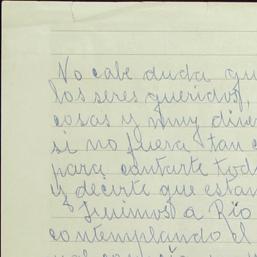 No cabe duda qu
los seres queridos,
cosas y muy dive
si no fuera tan c
para contarte tod
y decirte que estan
Fuimos a Rio
contemplando el